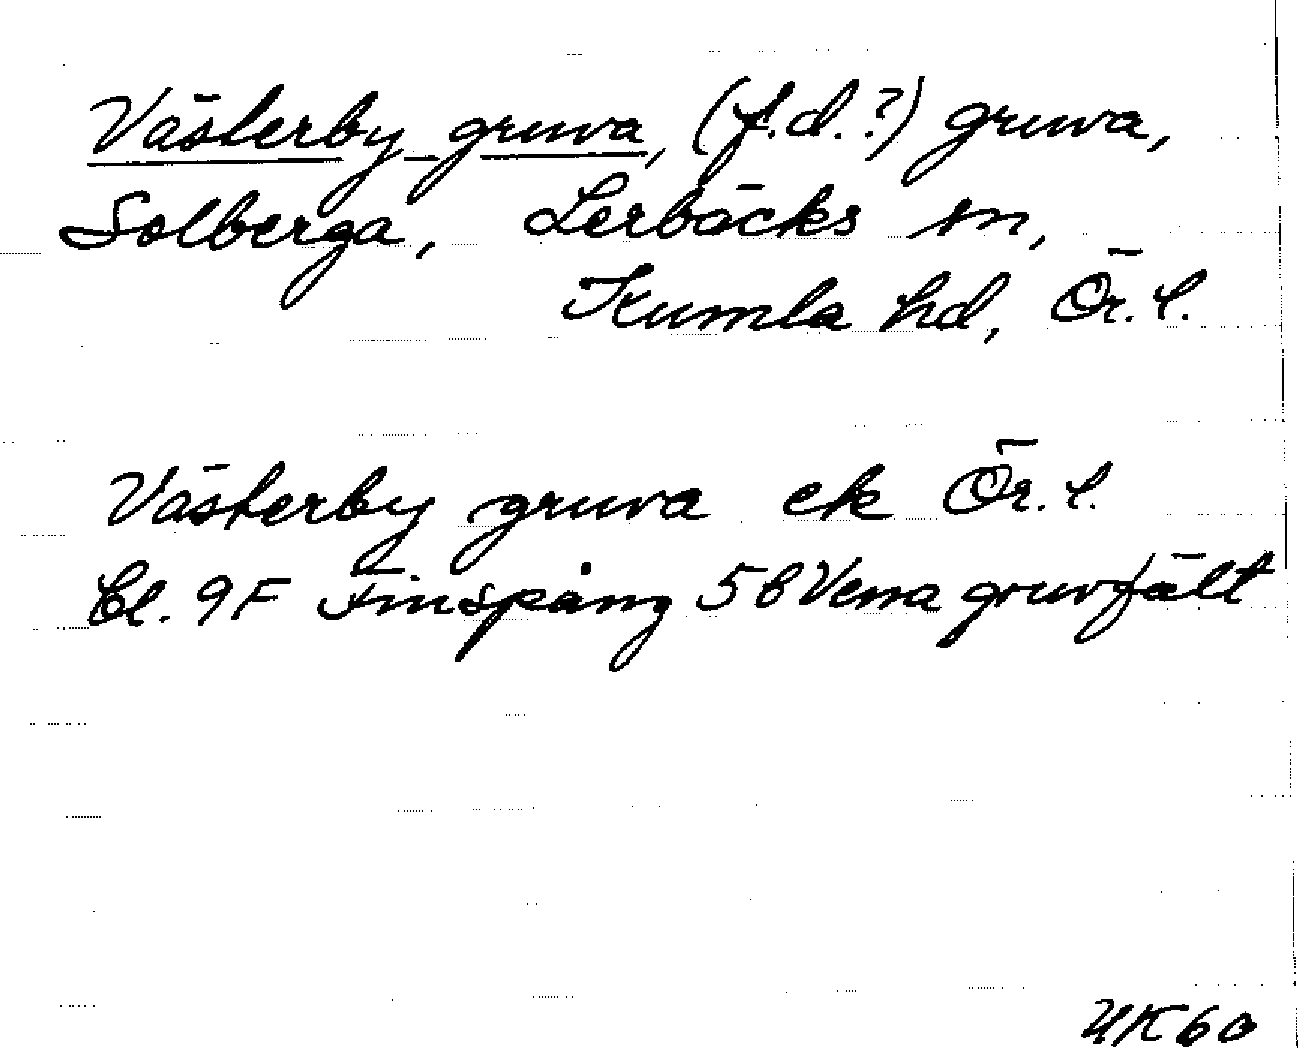 Västerby gruva, (f.d.?) gruva,
Solberga, Lerbäcks sn,
Kumla hd, Ör. l.
Västerby gruva ek Ör. l.
Bl. 9F Finspång 5b Vena gruvfält
UK60